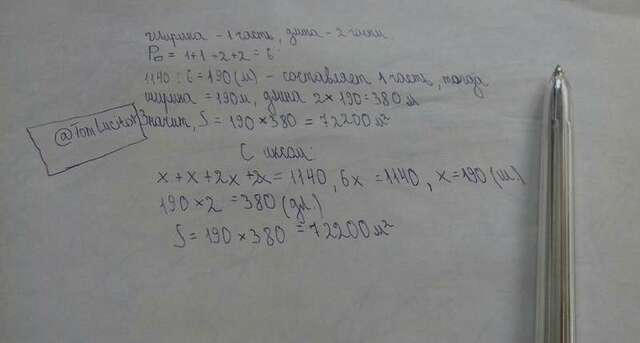 Ширина - 1 часть, длина - 2 части.
P▭ = 1+1+2+2 = 6
1140 : 6 = 190 (м) - составляет 1 часть, тогда
ширина = 190м, длина 2×190=380 м
@TomLucifor Значит, S = 190 × 380 = 72200 м²
С иксом:
x + x + 2x + 2x = 1140, 6x = 1140, x = 190 (ш)
190 × 2 = 380 (дл)
S = 190 × 380 = 72200 м²